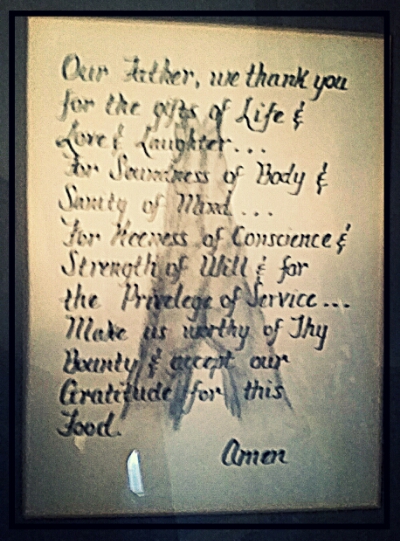 Our Father, we thank you
for the gifts of Life &
Love & Laughter...
For Soundness of Body &
Sanity of Mind...
For Keeness of Conscience &
Strength of Will & for
the Privelege of Service...
Make us worthy of Thy
Bounty & accept our
Gratitude for this
Food.
Amen